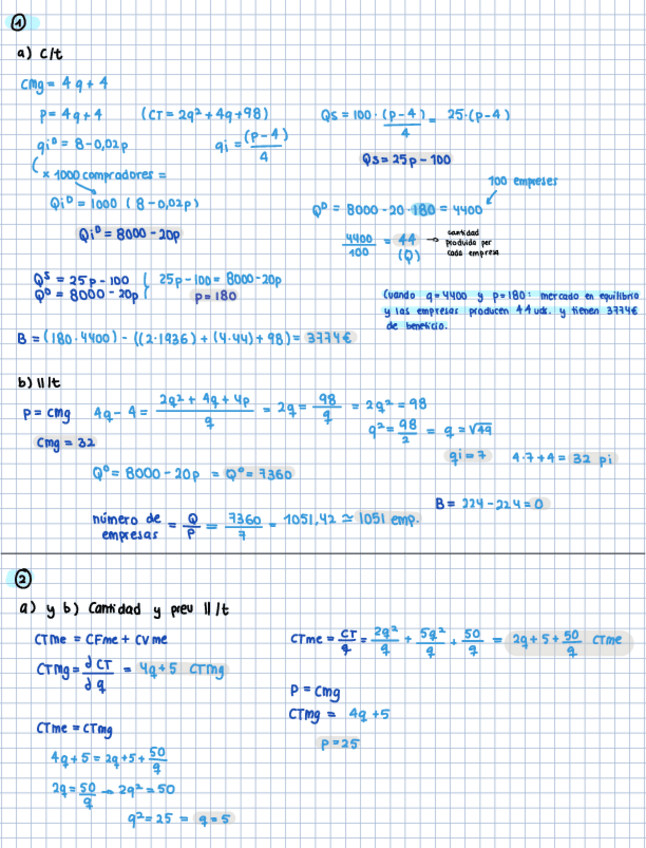 1
a) c/t
Cmg = 4q + 4
p = 4q + 4 (CT = 2q² + 4q + 98)
qiᴰ = 8 - 0,02p
qi = (p-4)/4
Qs = 100 · (p-4)/4 = 25·(p-4)
Qs = 25p - 100
x 1000 compradores =
Qiᴰ = 1000 (8 - 0,02p)
Qiᴰ = 8000 - 20p
100 empreses
Qᴰ = 8000 - 20·180 = 4400
4400/100 = 44 (Q) → cantidad produida per cada empresa
Qˢ = 25p - 100
Qᴰ = 8000 - 20p
25p - 100 = 8000 - 20p
p = 180
Cuando q = 4400 y p = 180: mercado en equilibrio
y las empresas producen 44 uds. y tienen 3774€
de beneficio.
B = (180·4400) - ((2·1936) + (4·44) + 98) = 3774€
b) ll/t
p = cmg 4q - 4 = (2q² + 4q + 4p)/q = 2q = 98/q = 2q² = 98
q² = 98/2 = q = √49
Cmg = 32
qi = 7 4·7+4 = 32 pi
Qᴰ = 8000 - 20p = Qᴰ = 7360
B = 224 - 224 = 0
número de empresas = Q/P = 7360/7 = 1051,42 ≃ 1051 emp.
2
a) y b) Cantidad y preu ll/t
CTme = CFme + CVme
CTme = CT/q = 2q²/q + 5q²/q + 50/q = 2q + 5 + 50/q CTme
CTmg = dCT/dq = 4q + 5 CTmg
P = Cmg
CTmg = 4q + 5
p = 25
CTme = CTmg
4q + 5 = 2q + 5 + 50/q
2q = 50/q → 2q² = 50
q² = 25 = q = 5